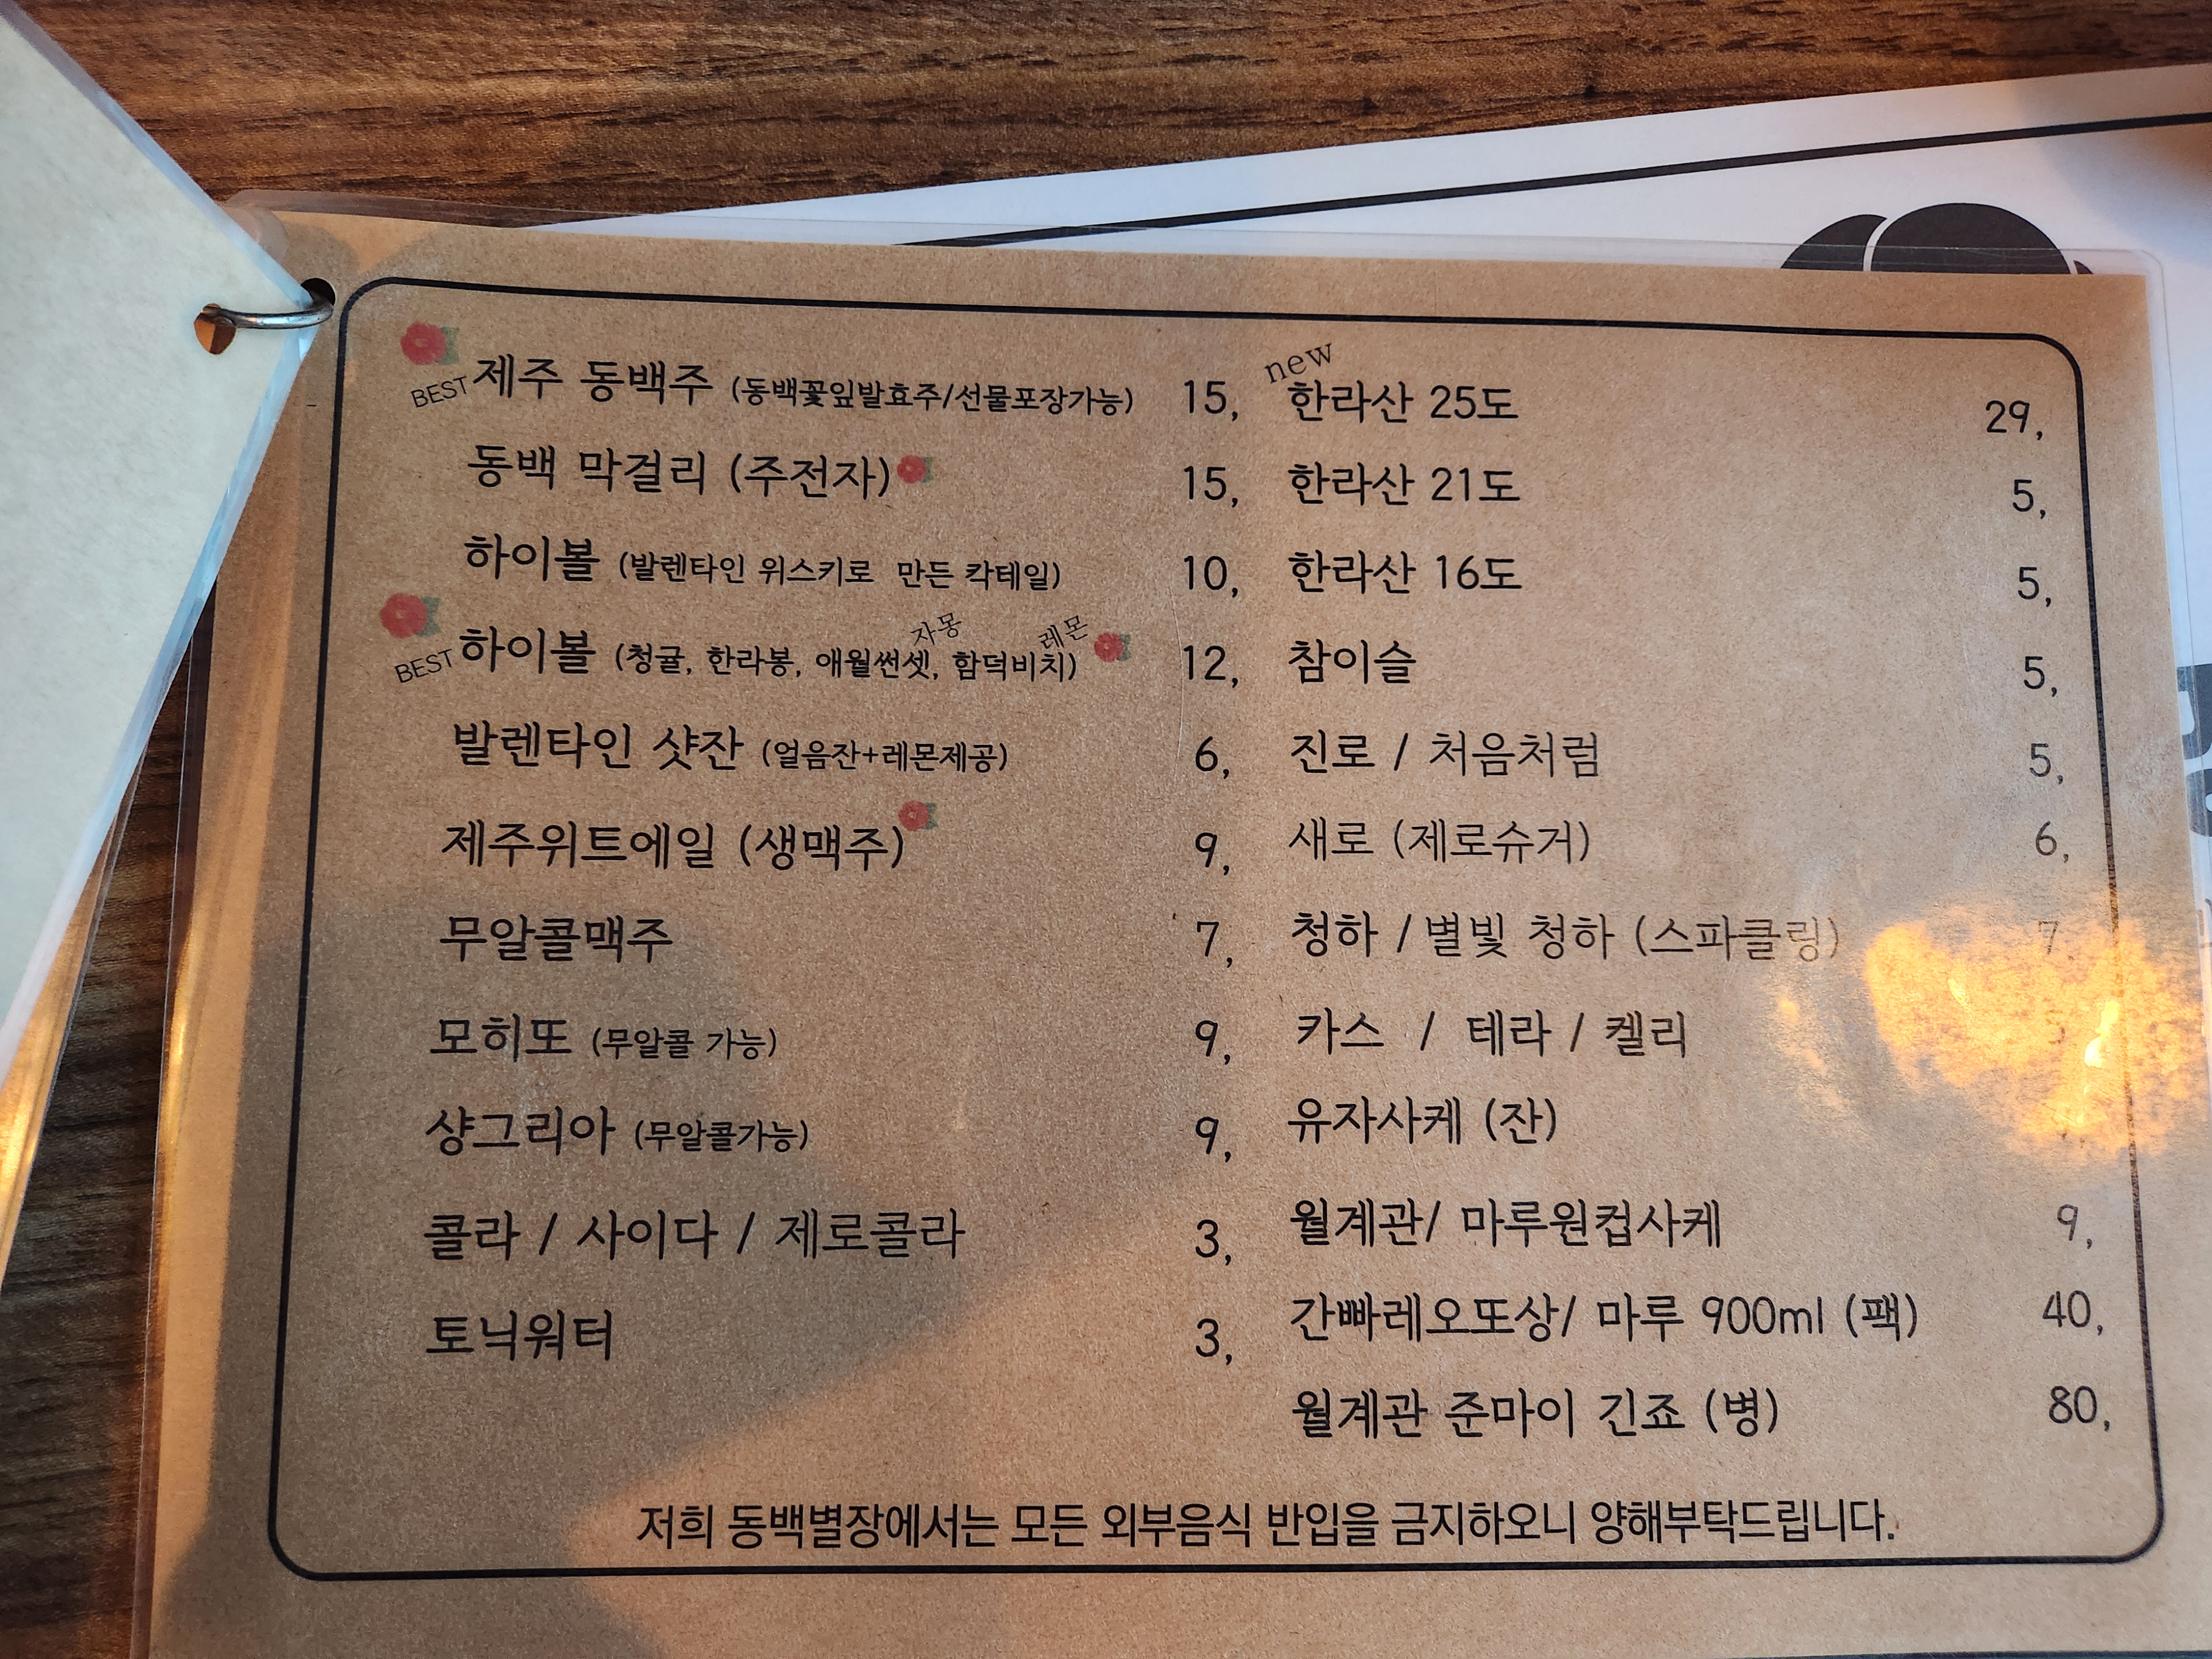 BEST 제주 동백주 (동백꽃잎발효주/선물포장가능) 15,
동백 막걸리 (주전자) 15,
하이볼 (발렌타인 위스키로 만든 칵테일) 10,
자몽 레몬
BEST 하이볼 (청귤, 한라봉, 애월썬셋, 함덕비치) 12,
발렌타인 샷잔 (얼음잔+레몬제공) 6,
제주위트에일 (생맥주) 9,
무알콜맥주 7,
모히또 (무알콜 가능) 9,
샹그리아 (무알콜가능) 9,
콜라 / 사이다 / 제로콜라 3,
토닉워터 3,
new
한라산 25도 29,
한라산 21도 5,
한라산 16도 5,
참이슬 5,
진로 / 처음처럼 5,
새로 (제로슈거) 6,
청하 / 별빛 청하 (스파클링) 7,
카스 / 테라 / 켈리
유자사케 (잔)
월계관/ 마루원컵사케 9,
간빠레오또상/ 마루 900ml (팩) 40,
월계관 준마이 긴죠 (병) 80,
저희 동백별장에서는 모든 외부음식 반입을 금지하오니 양해부탁드립니다.